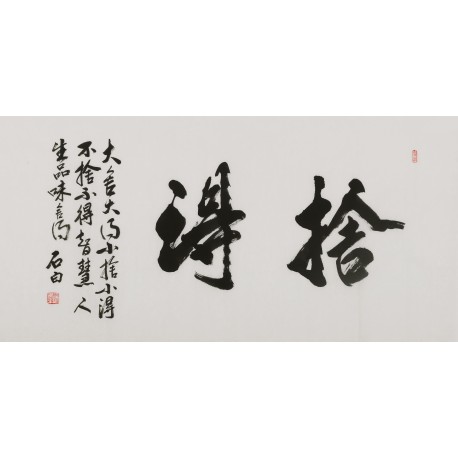 捨得
大舍大得小捨小得
不捨不得智慧人
生品味舍得 石白